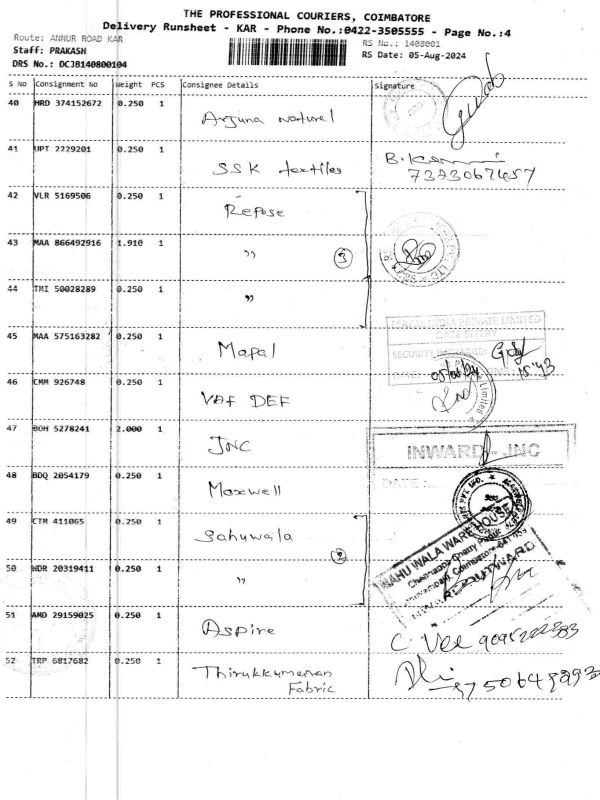 THE PROFESSIONAL COURIERS, COIMBATORE
Delivery Runsheet - KAR - Phone No.:0422-3505555 - Page No.:4
Route: ANNUR ROAD KAR
RS No.: 1408001
Staff: PRAKASH
RS Date: 05-Aug-2024
DRS No.: DCJB140800104
S No Consignment No Weight PCS Consignee Details Signature
40 HRD 374152672 0.250 1 Arjuna Natural
41 UPT 2229201 0.250 1 SSK textiles
42 VLR 5169506 0.250 1 Repose
43 MAA 866492916 1.910 1 " 3
44 TMI 50028289 0.250 1 "
45 MAA 575163282 0.250 1 Mapal
PRIVATE LIMITED
GATE ENTRY
SECURITY
46 CMM 926748 0.250 1 VAF DEF
47 BOH 5278241 2.000 1 JNC
INWARD - JNC
DATE :
48 BDQ 2054179 0.250 1 Maxwell
49 CTM 411065 0.250 1 Sahuwala
2
50 WDR 20319411 0.250 1 "
WALA WARE HOUSE
51 AMD 29159025 0.250 1 Aspire
52 TRP 6817682 0.250 1 Thirukkumaran
Fabric